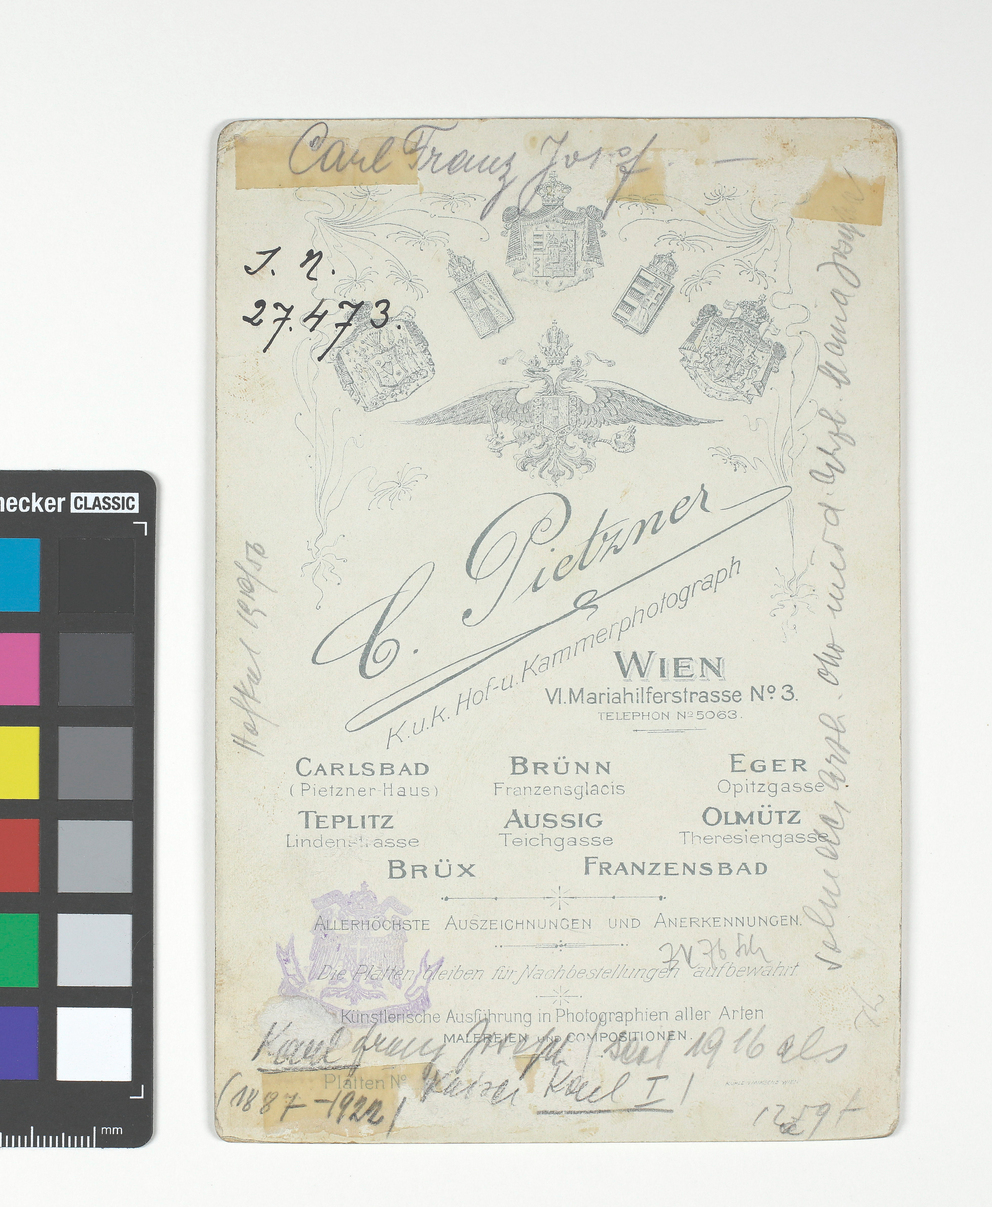 Carl Franz Josef —
I. N.
27.473.
C. Pietzner
K. u. k. Hof- u. Kammerphotograph
WIEN
VI. Mariahilferstrasse No 3.
TELEPHON No 5063.
CARLSBAD
(Pietzner-Haus)
BRÜNN
Franzensglacis
EGER
Opitzgasse
TEPLITZ
Lindenstrasse
AUSSIG
Teichgasse
OLMÜTZ
Theresiengasse
BRÜX
FRANZENSBAD
ALLERHÖCHSTE AUSZEICHNUNGEN UND ANERKENNUNGEN.
Die Platten bleiben für Nachbestellungen aufbewahrt
Künstlerische Ausführung in Photographien aller Arten
MALEREIEN UND COMPOSITIONEN.
Platten No
Karl Franz Joseph (seit 1916 als
Kaiser Karl I)
(1887-1922)
Sohn des Erzh. Otto und d. Erzh. Maria Josefa
necker CLASSIC
mm